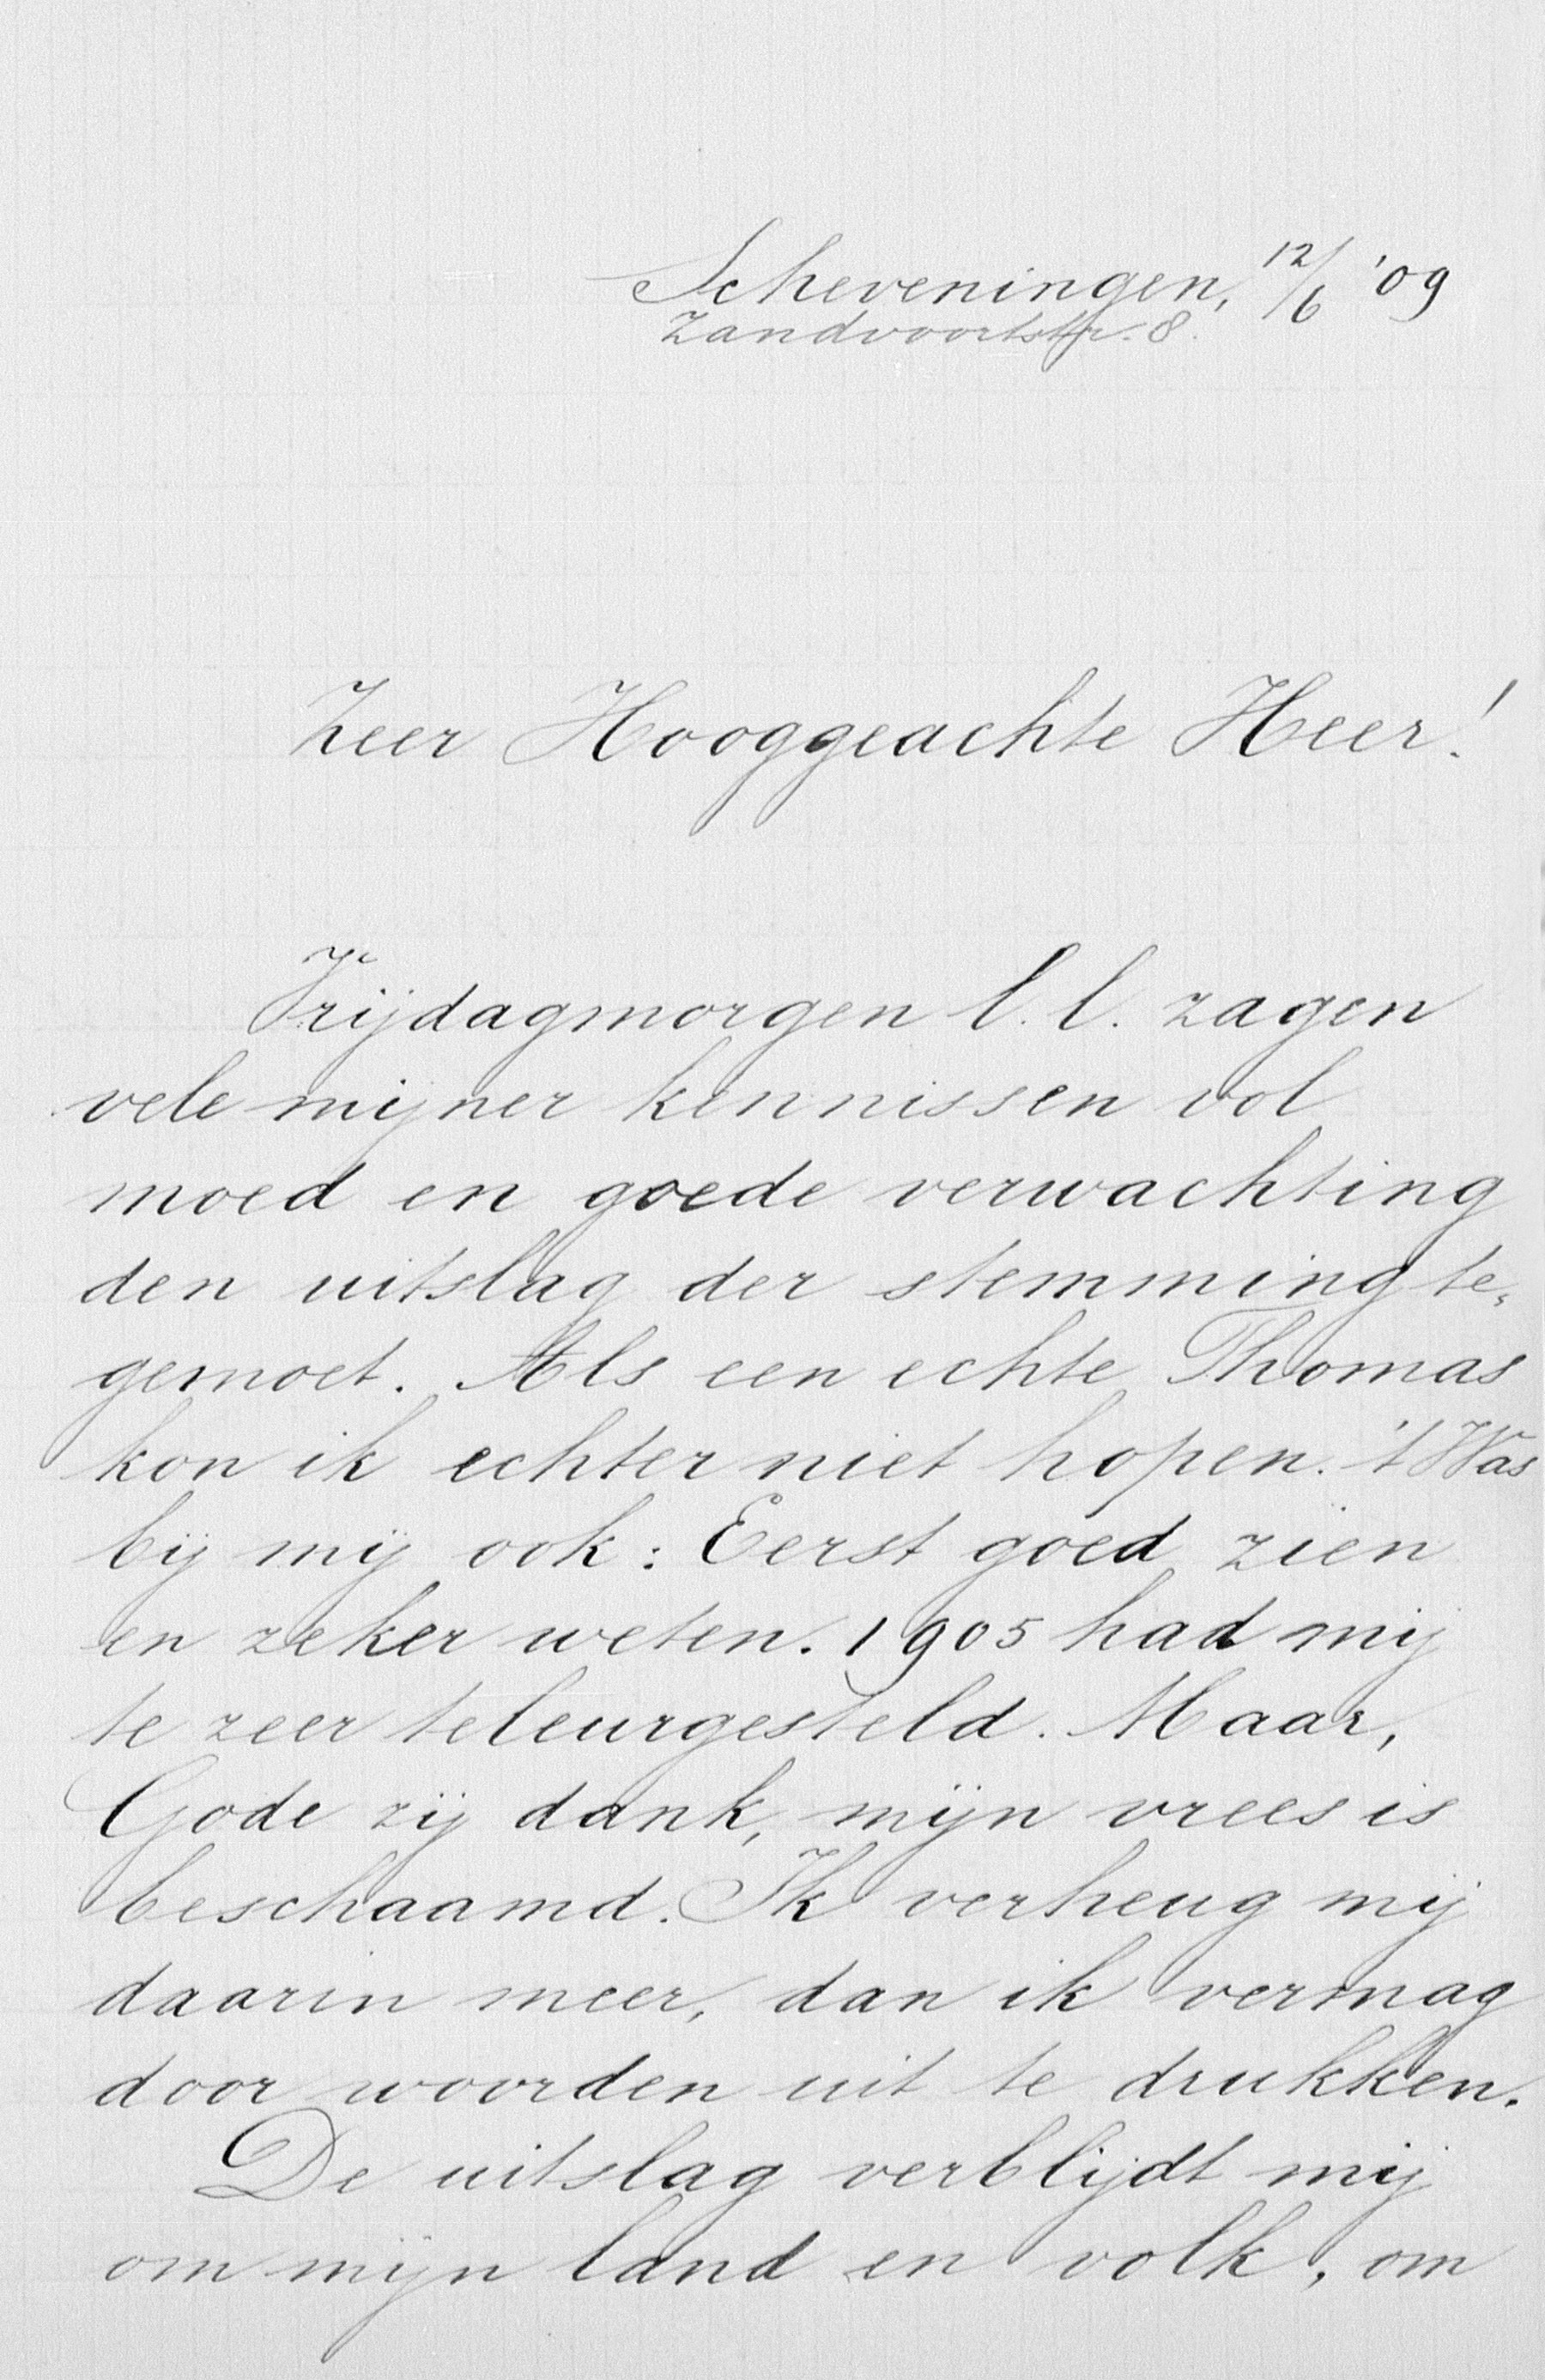 Scheveningen, 12/6 '09
Zandvoortstr. 8.
Zeer Hooggeachte Heer!
Vrijdagmorgen l.l. zagen
vele mijner kennissen vol
moed en goede verwachting
den uitslag der stemming te-
gemoet. Als een echte Thomas
kon ik echter niet hopen. 't Was
bij mij ook: Eerst goed zien
en zeker weten. 1905 had mij
te zeer teleurgesteld. Maar,
Gode zij dank, mijn vrees is
beschaamd. Ik verheug mij
daarin meer, dan ik vermag
door woorden uit te drukken.
De uitslag verblijdt mij
om mijn land en volk, om